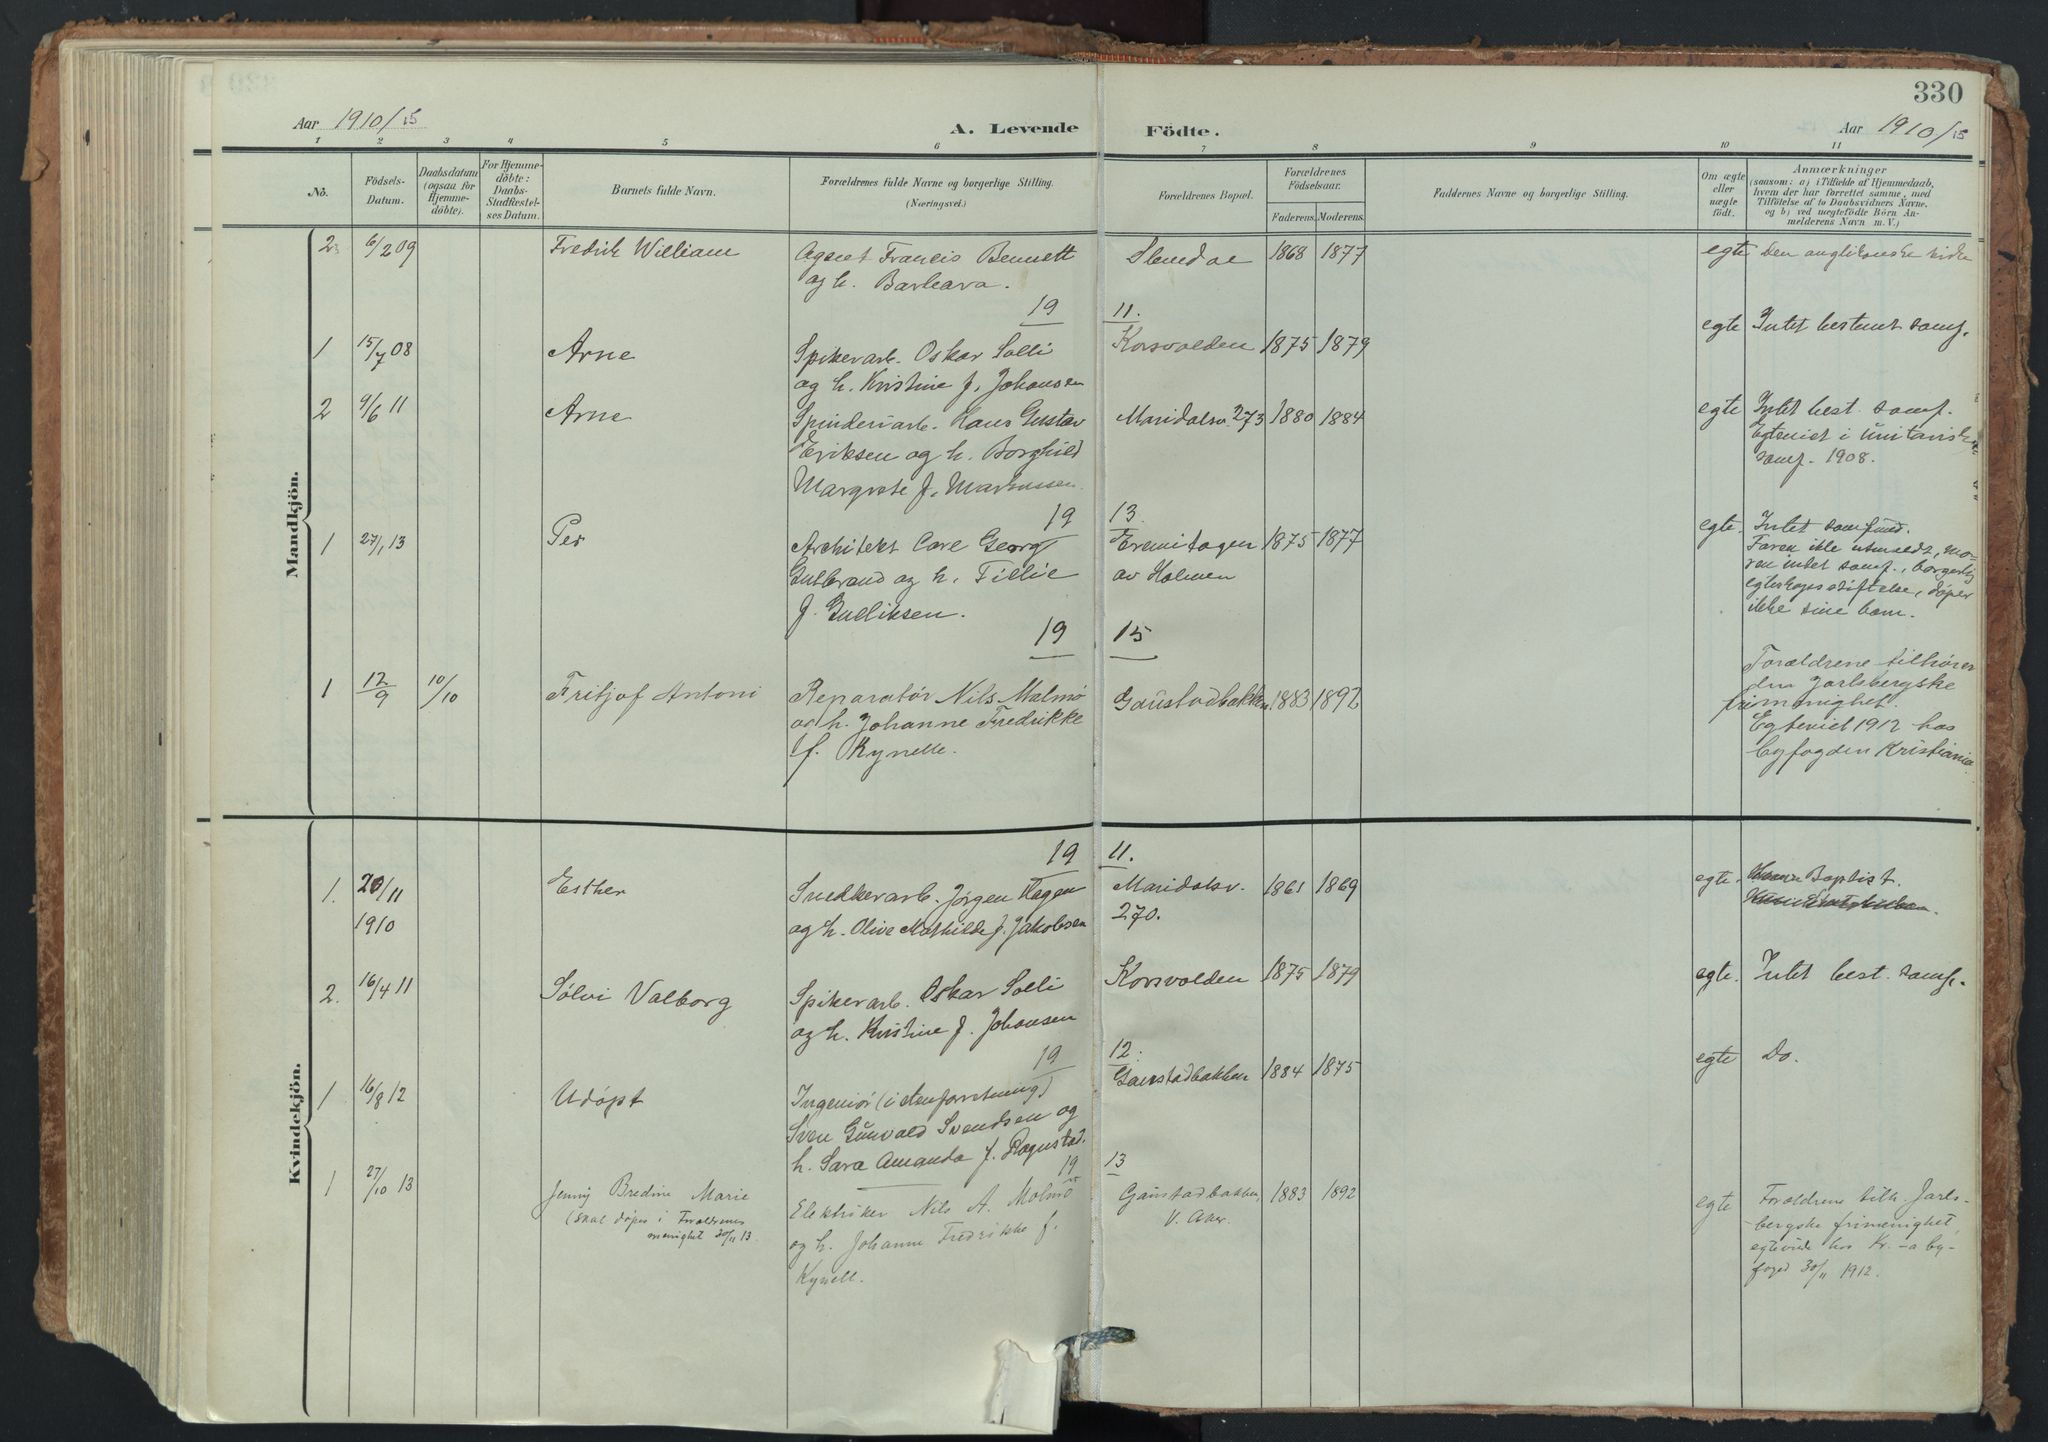 330
Aar 1910/15 A. Levende Födte. Aar 1910/15
1 2 3 4 5 6 7 8 9 10 11
No. Födsels-Datum. Daabsdatum (ogsaa for Hjemme-döbte). For Hjemme-döbte: Daabs-Stadfæstel-ses Datum. Barnets fulde Navn. Forældrenes fulde Navne og borgerlige Stilling. (Næringsvei.) Forældrenes Bopæl. Forældrenes Födselsaar. Faderens. Moderens. Faddernes Navne og borgerlige Stilling. Om ægte eller uægte födt. Anmærkninger (saasom: a) i Tilfælde af Hjemmedaab, hvem der har forrettet samme, med Tilföielse af to Daabsvidners Navne, og b) ved uægtefödte Börn An-melderens Navn m. V.)
Mandkjön.
2 6/2 09 Fredrik William Agent Francis Bennett Slemdal 1868 1877 egte Den anglikanske kirke
og h. Barbara.
19 11.
1 15/7 08 Arne Spikerarb. Oskar Solli Korsvolden 1875 1879 egte Intet bestemt samf.
og h. Kristine f. Johansen
2 9/6 11 Arne Spinderiarb. Hans Gustav Maridalsv. 273 1880 1884 egte Intet best. samf.
Eriksen og h. Borghild Egteviet i unitarisk
Margrete f. Markussen. samf. 1908.
19 13.
1 27/1 13 Per Architekt Carl Georg Eremitagen 1875 1877 egte. Intet samfund.
Gulbrand og h. Tillie av Holmen Faren ikke utmeldt, mo-
f. Gulliksen. ren intet samf., borgerlig
egteskapsstiftelse, døper
ikke sine barn.
19 15
1 12/9 10/10 Fritjof Antoni Reparatør Nils Malmø Gaustadbakken 1883 1892 Forældrene tilhører
og h. Johanne Fredrikke den Jarlsbergske
f. Kynell. frimenighet.
Egteviet 1912 hos
byfogden Kristiania.
Kvindekjön.
19 11.
1. 20/11 1910 Esther Snedkerarb. Jørgen Hagen Maridalsv. 1861 1869 egte. Baptist.
og h. Olive Mathilde f. Jakobsen 270.
2. 16/4 11 Sølvi Valborg Spikerarb. Oskar Solli Korsvolden 1875 1879 egte. Intet best. samf.
og h. Kristine f. Johansen
19 12.
1 16/8 12 Udøpt Ingeniør (i Gaustadbakken 1884 1875 egte Do.
Sven Gunvald Svendsen og
h. Sara Amanda f. Rognstad.
19 13
1 27/10 13 Jenny Bredine Marie Elektriker Nils A. Malmø Gaustadbakken, 1883 1892 egte Forældrene tilh. Jarls-
(skal døpes i Forældrenes og h. Johanne Fredrikke f. V. Aker. bergske frimenighet,
menighet 30/11 13. Kynell. egteviede hos Kr.-a by-
foged 30/11 1912.